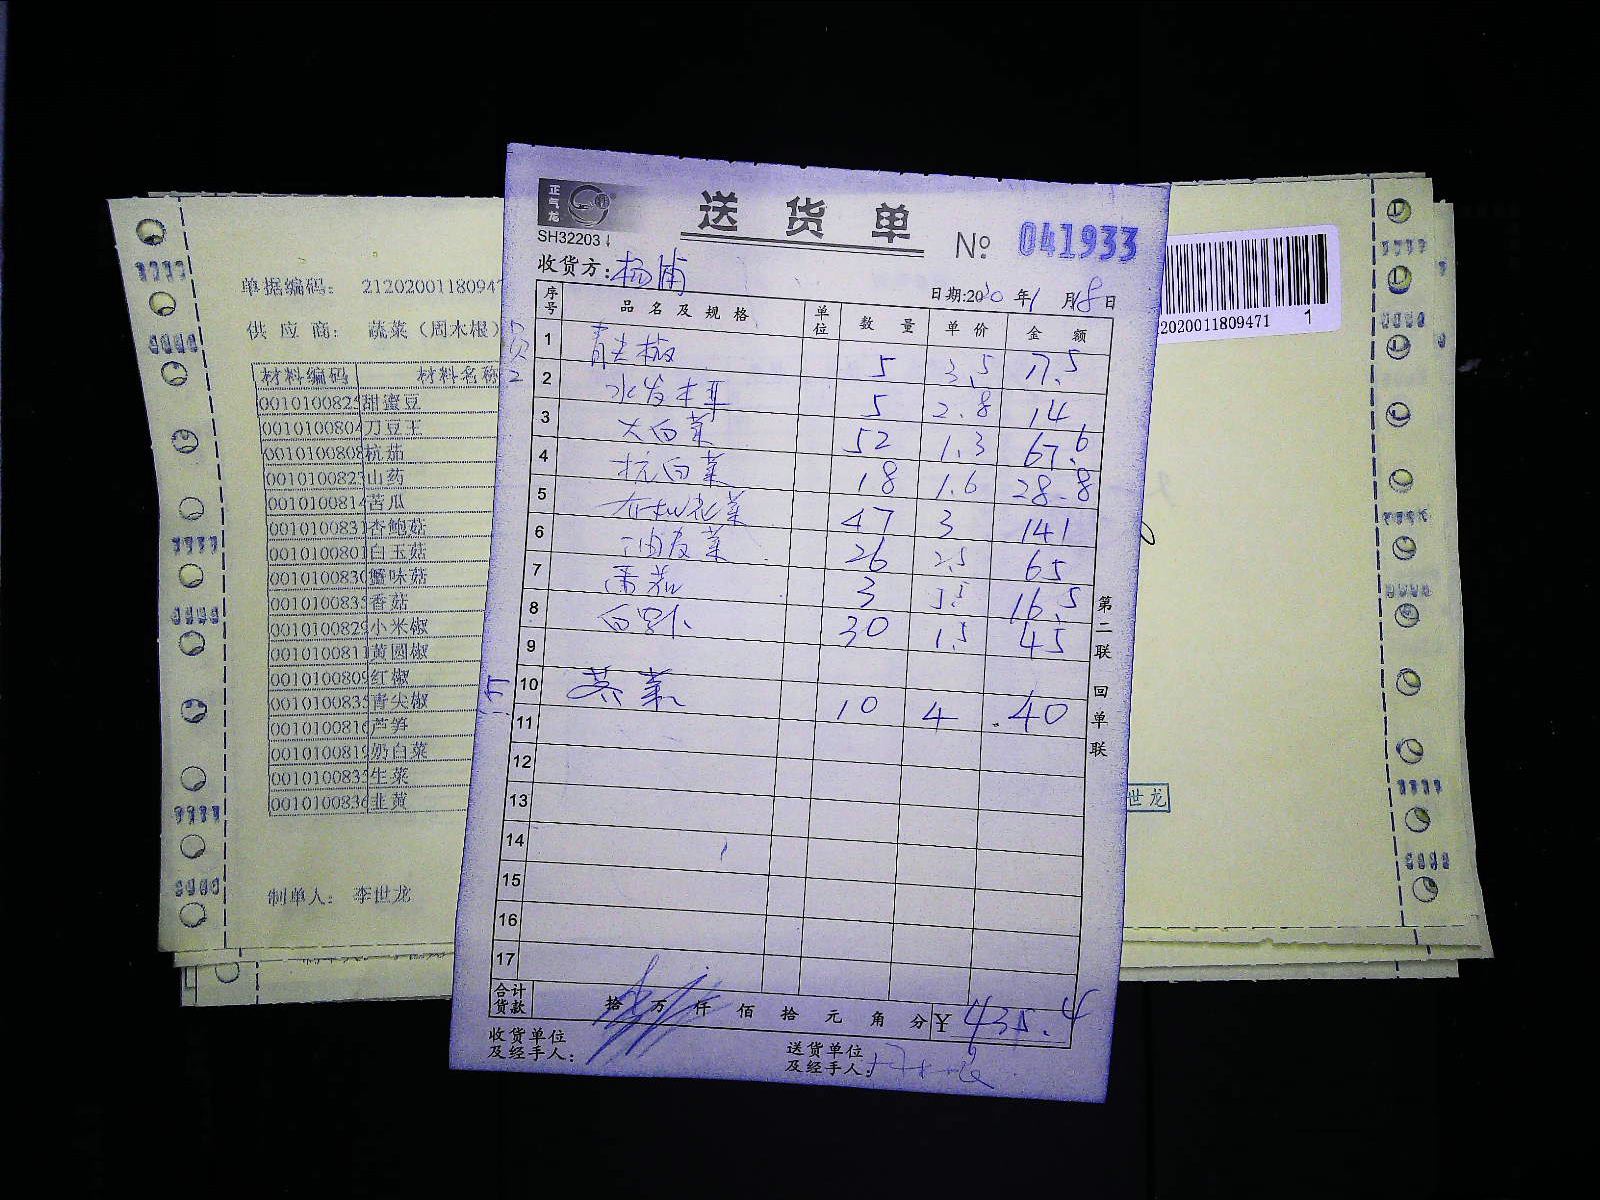 正气龙
SH32203
送货单
№ 041933
收货方：杨浦
日期：2020年1月18日
序号 品名及规格 单位 数量 单价 金额
1 青尖椒 5 3.5 17.5
2 水发木耳 5 2.8 14
3 大白菜 52 1.3 67.6
4 杭白菜 18 1.6 28.8
5 有机花菜 47 3 141
6 油麦菜 26 2.5 65
7 番茄 3 5.5 16.5
8 白萝卜 30 1.5 45
9
10 10 4 40
11
12
13
14
15
16
17
合计货款 拾 万 仟 佰 拾 元 角 分 ¥ 435.4
收货单位及经手人：
送货单位及经手人：
第二联 回单联
单据编码： 2120200118094
供应商： 蔬菜（周木根）
材料编码 材料名称
001010082 甜蜜豆
001010080 刀豆王
001010080 杭茄
001010082 山药
001010081 苦瓜
001010083 杏鲍菇
001010080 白玉菇
001010083 蟹味菇
001010083 香菇
001010082 小米椒
001010081 黄圆椒
001010080 红椒
001010083 青尖椒
001010081 芦笋
001010081 奶白菜
001010083 生菜
001010083 韭黄
制单人： 李世龙
2020011809471 1
世龙